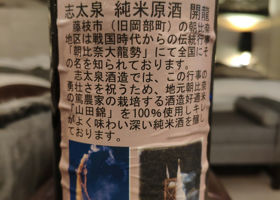 志太泉 純米原酒 開龍
藤枝市(旧岡部町)の朝比奈
地区は戦国時代からの伝統行事
「朝比奈大龍勢」にて全国にそ
の名を知られております。
志太泉酒造では、この行事の
勇壮さを祝うため、地元朝比奈
の篤農家の栽培する酒造好適米
「山田錦」を100%使用しキレ
がよく味わい深い純米酒を醸し
ております。